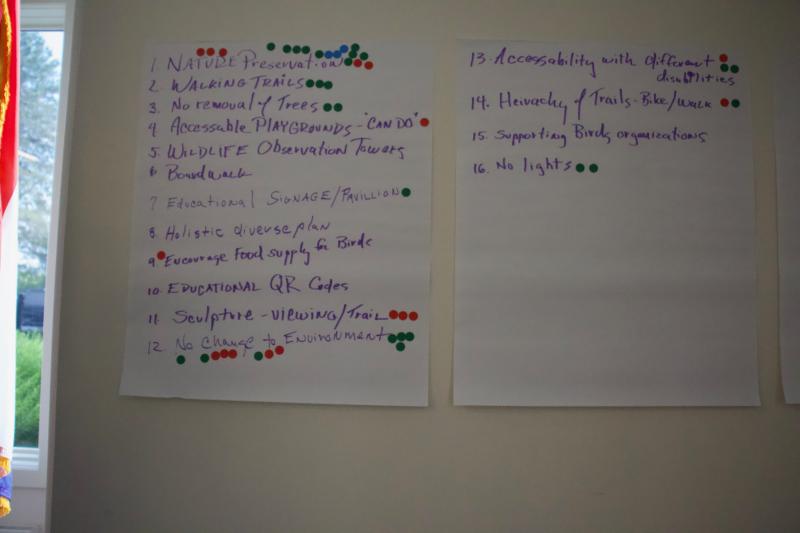 1. NATURE Preservation
2. WALKING TRAILS
3. No removal of Trees
4. Accessable PLAYGROUNDS - "CAN DO"
5. WILDLIFE Observation Towers
6 Boardwalk
7 Educational SIGNAGE/PAVILLION
8. Holistic diverse plan
9. Encourage Food supply for Birds
10. EDUCATIONAL QR Codes
11. Sculpture - VIEWING/TRAIL
12. No Change to ENVIRONMENT
13. Accessability with different
disabilities
14. Heirachy of Trails - Bike/Walk
15. Supporting Birds organizations
16. No lights